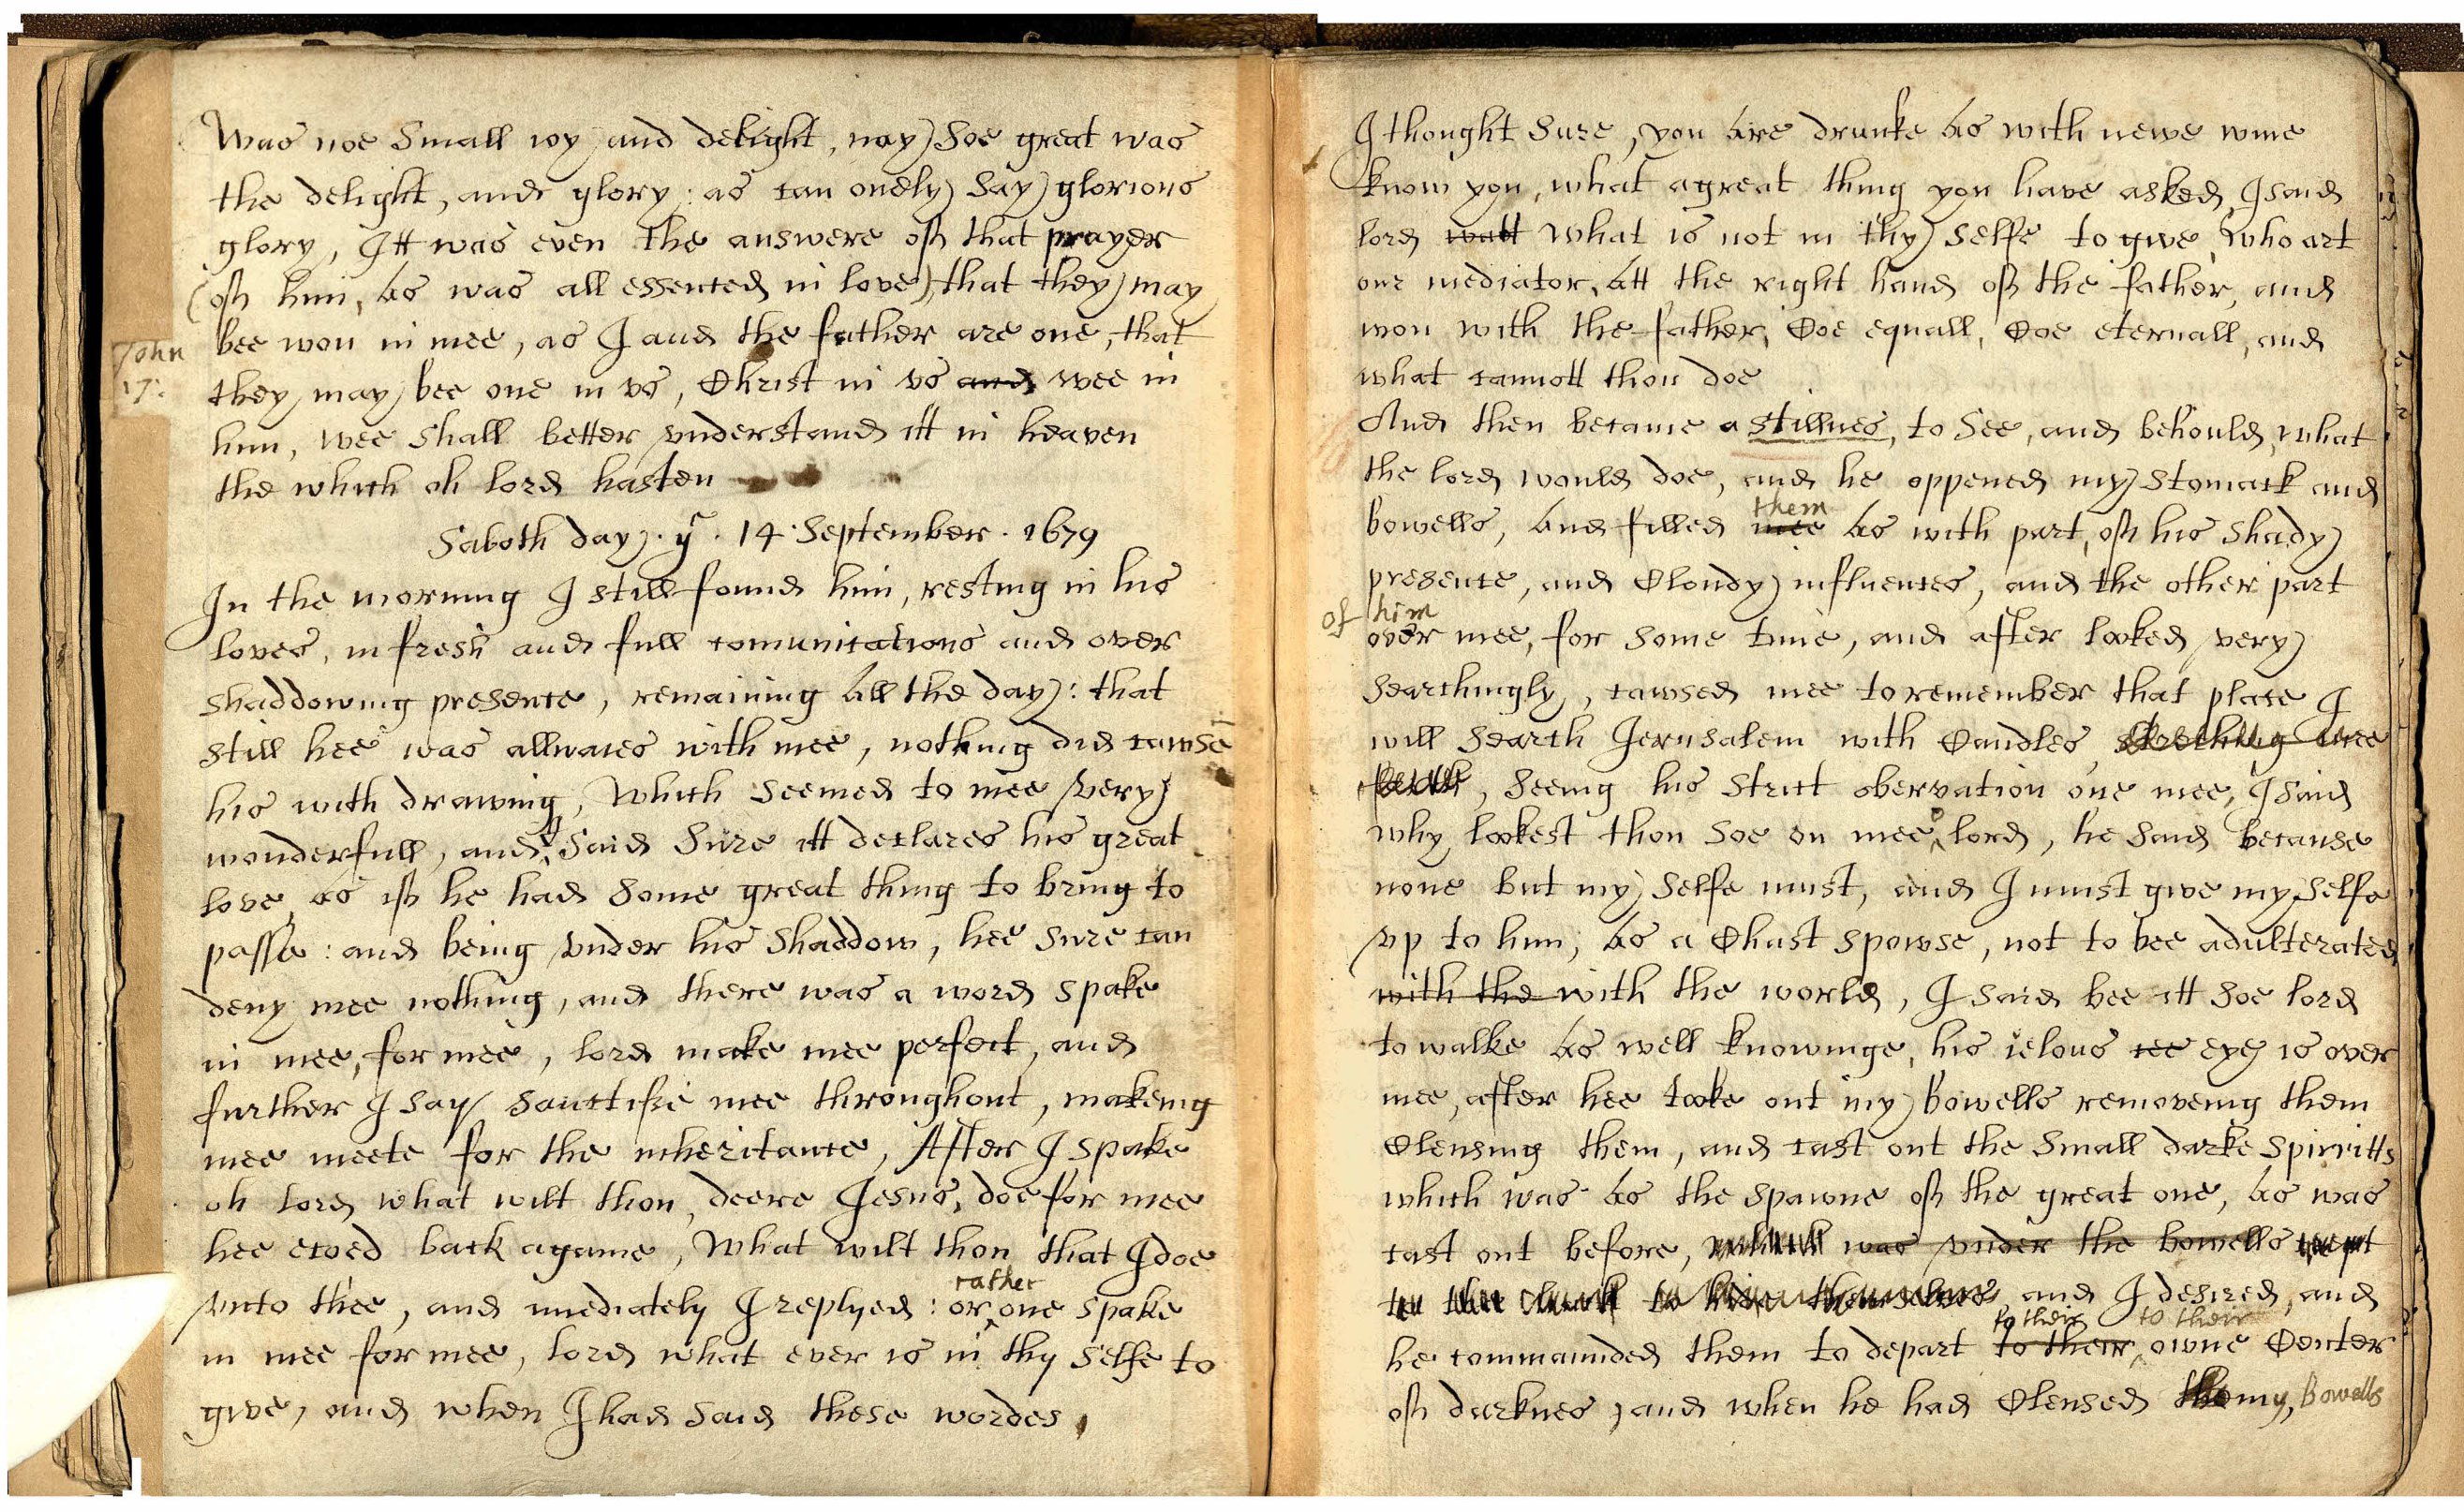 Was noe small ioy and delight, nay soe great was
the delight, and glory: as can onely say glorious
glory, Itt was even the answere off that prayer
(off him, as was all essenced in love) that they may
John
17:
bee won in mee, as I and the father are one, that
they may bee one in vs, Christ in vs and wee in
him, wee shall better vnderstand itt in heaven
the which oh lord hasten
Saboth day . ye . 14 . September . 1679
In the morning I still found him, resting in his
loves, in fresh and full comunications and over
shaddowing presence, remaining all the day: that
still hee was allwaies with mee, nothing did cawse
his with drawing, Which seemed to mee very
wonderfull, and I said sure itt declares his great
love, as iff he had some great thing to bring to
passe: and being vnder his shaddow, hee sure can
deny mee nothing, and there was a word spake
in mee, for mee, lord make mee perfect, and
further I say sanctifie mee throughout, makeing
mee meete for the inheritance, After I spake
oh lord what wilt thou, deere Jesus, doe for mee
hee ecoed back againe, What wilt thou that I doe
vnto thee, and imediately I replyed: or rather one spake
in mee for mee, lord what ever is in thy selfe to
give, and when I had said these wordes,
I thought sure, you are drunke as with newe wine
know you, what a great thing you have asked, I said
lord watt What is not in thy selfe to give, who art
our mediator, att the right hand off the father, and
won with the father, Coe equall, Coe eternall, and
what cannott thou doe
And then became a stillnes, to see, and behould, what
the lord would doe, and he oppened my stomack and
bowells, and filled mee them as with part, off his shady
presence, and Cloudy influences, and the other part
of him
over mee, for some time, and after looked very
searchingly, cawsed mee to remember that place I
will search Jerusalem with Candles,
, seeing his strict obervation one mee, I said
why lookest thou soe on mee, lord, he said because
none but my selfe must, and I must give my selfe
vp to him, as a Chast spowse, not to bee adulterated
with the with the world, I said bee itt soe lord
to walke as well knowinge, his ielous eye is over
mee, after hee tooke out my bowells removeing them
Clensing them, and cast out the small darke spirritts
which was as the spawne off the great one, as was
cast out before, which was vnder the bowells
and I desired, and
he commaunded them to depart to their to their to their owne Center
off darknes, and when he had Clensed my, Bowells